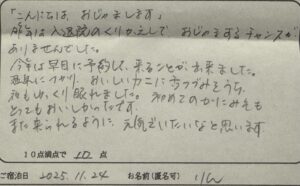 「こんにちは、おじゃまします」
昨年は入退院のくりかえしで おじゃまするチャンスが
ありませんでした。
今年は早目に予約して、来ることが出来ました。
温泉につかり、おいしいカニに
夜もゆっくり眠れました。初めてのかにみそも
とってもおいしかったです。
また来られるように、元気でいたいなと思います
10点満点で 10 点
ご宿泊日 2025.11.24 お名前(匿名可)